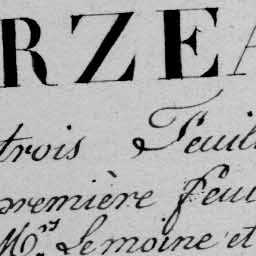 RZEA
trois Feuil
première feui
Mrs. Lemoine et